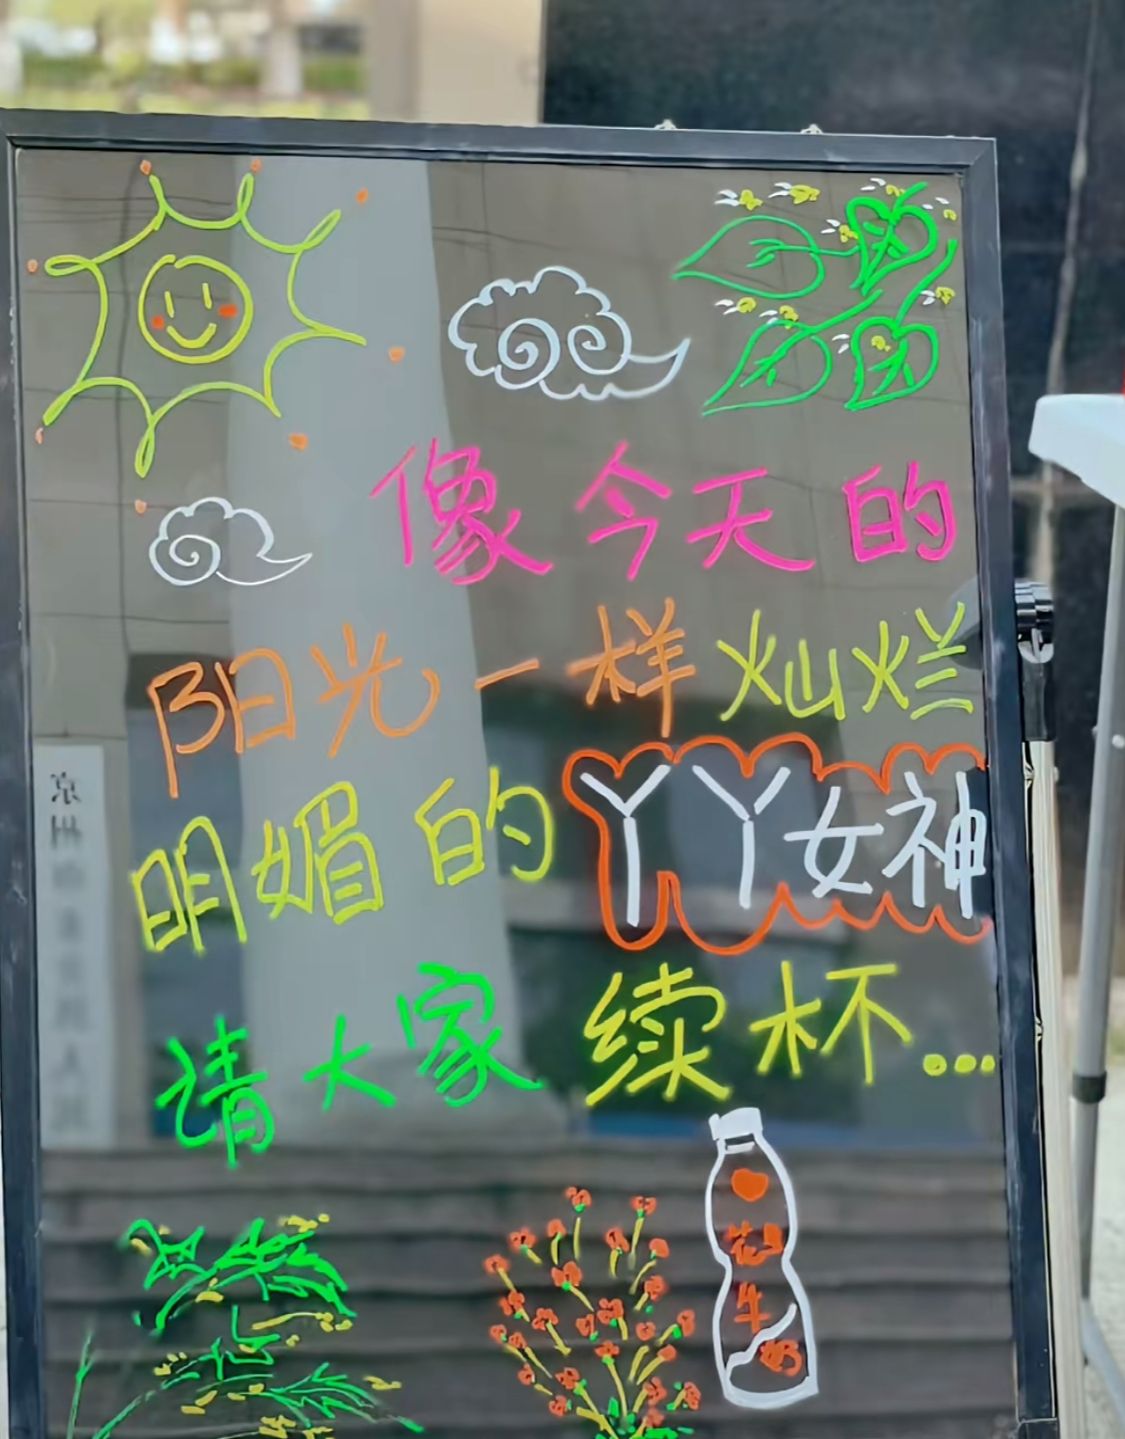 像今天的
阳光一样灿烂
明媚的丫丫女神
请大家续杯...
花生
牛
奶